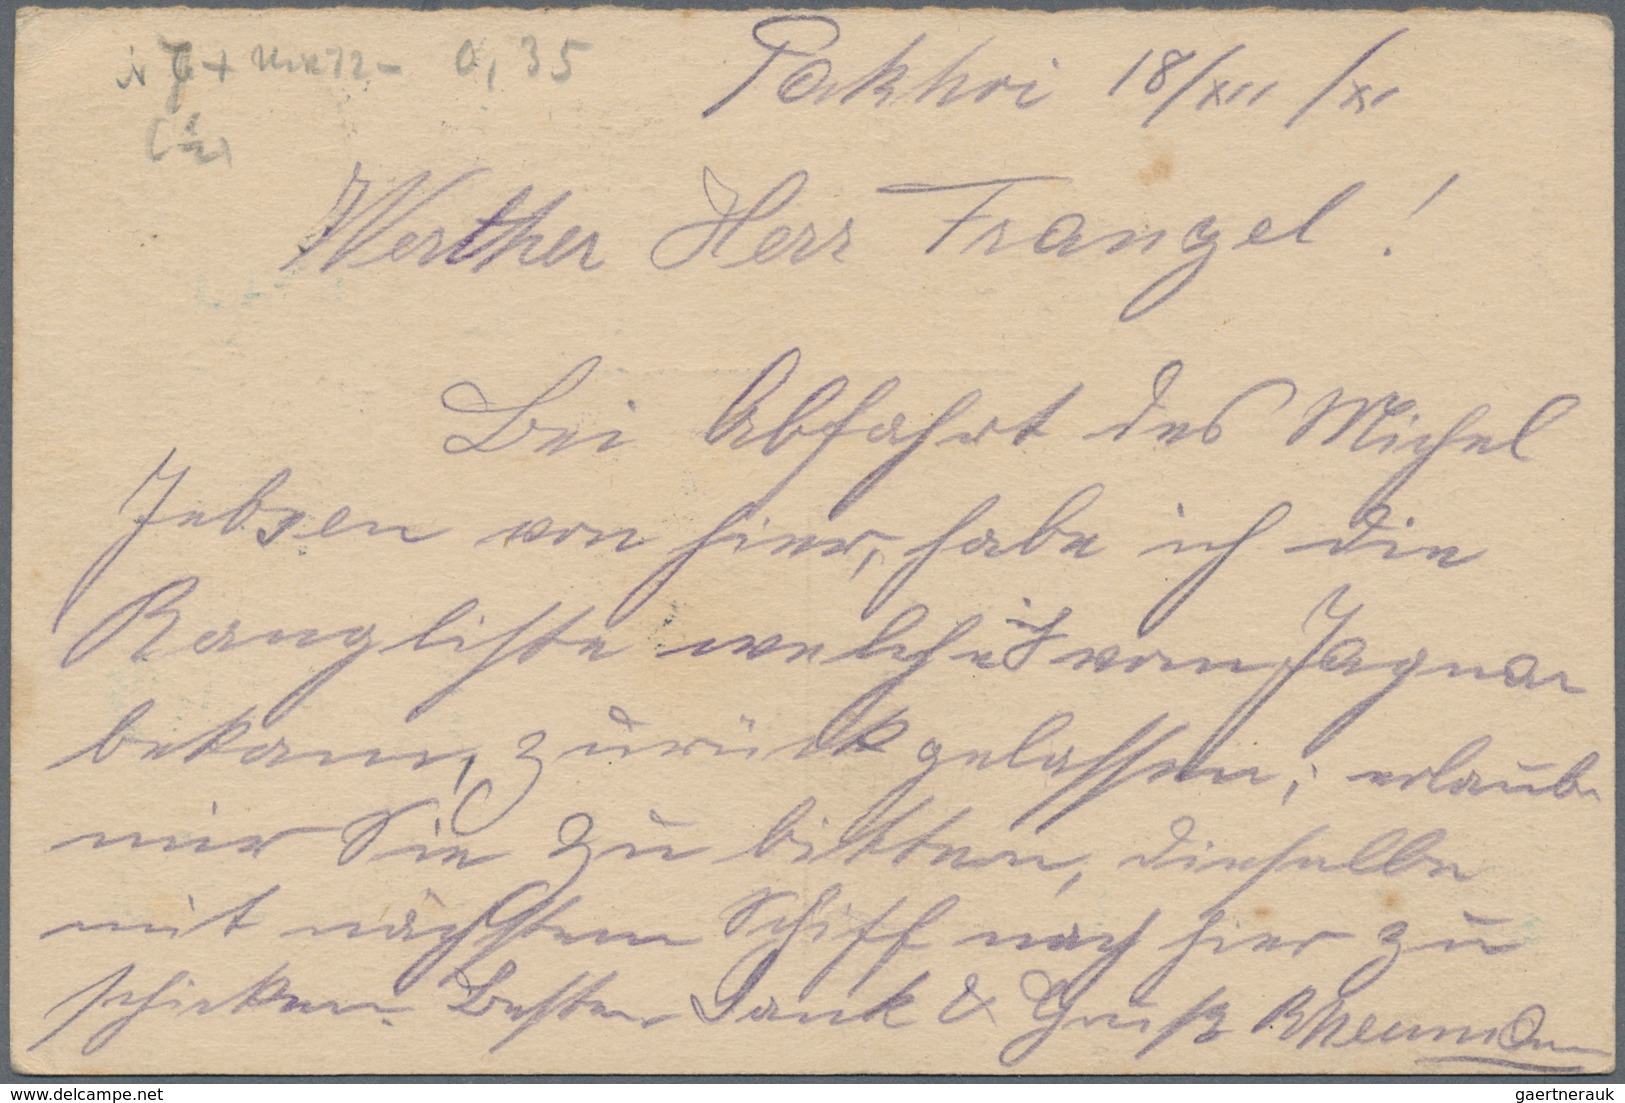 0,35
Pakhoi 18/XII /XI
Werther Herr Frangel!
Bei Abfahrt des Michel
Jebsen von hier, habe ich die
Rangliste welche ich vom Jaguar
bekam, zurückgelassen; erlaube
mir Sie zu bitten, dieselbe
mit nächstem Schiff nach hier zu
schicken. Besten Dank & Gruß
delcampe.net
gaertnerauk